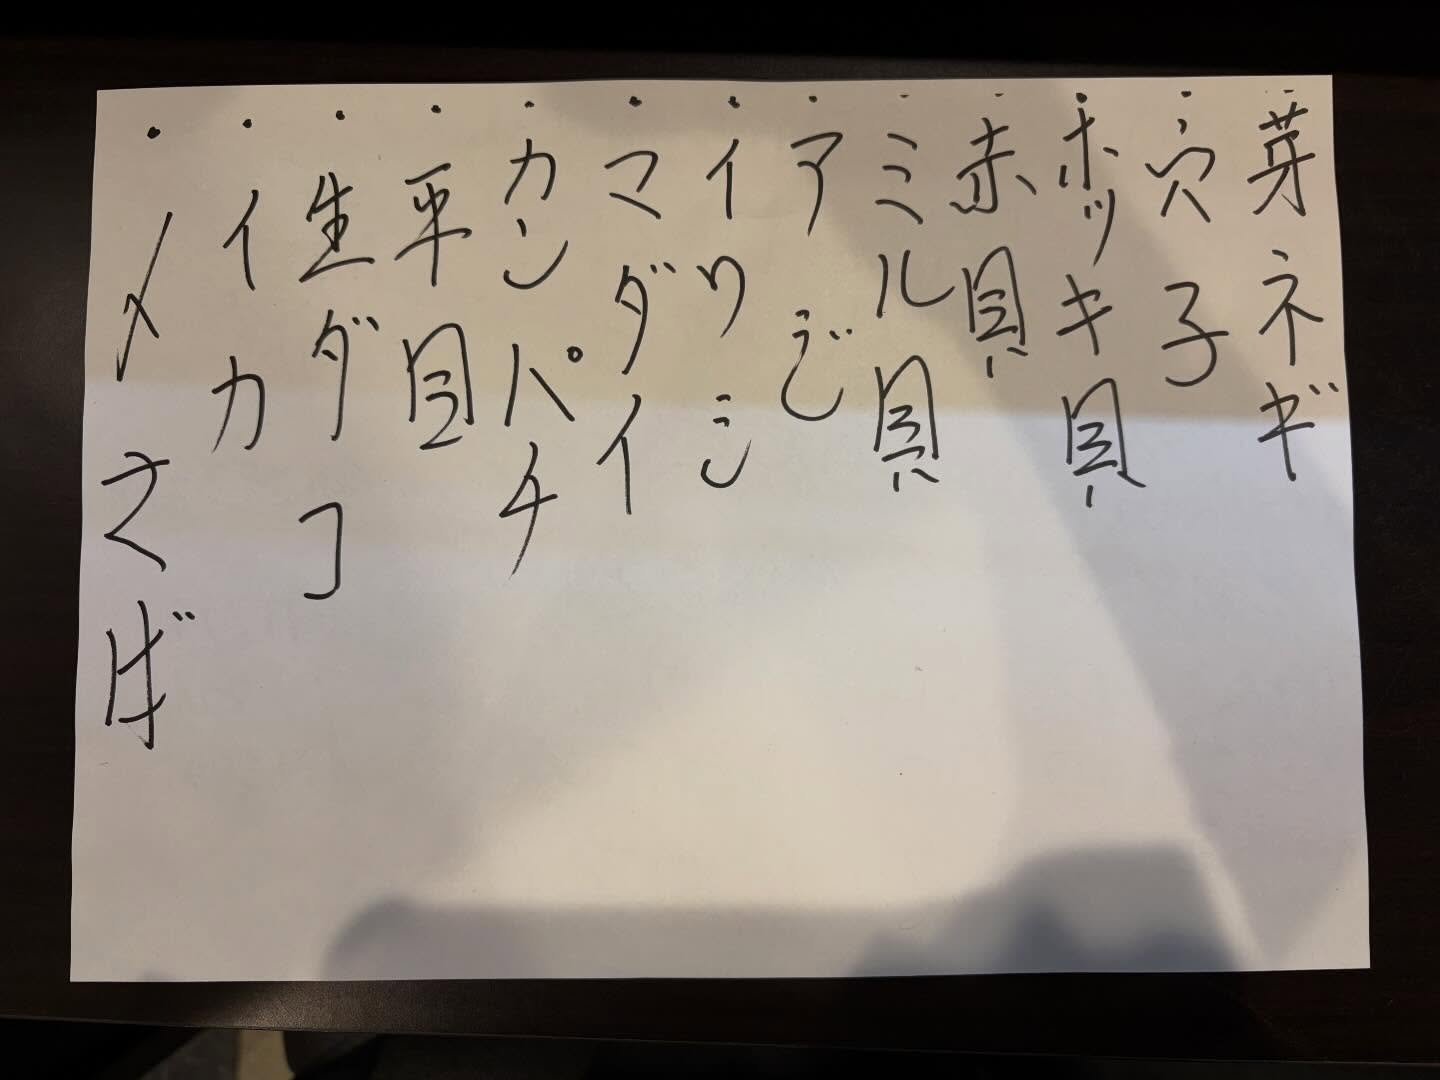 ・芽ネギ
・穴子
・ホッキ貝
・赤貝
・ミル貝
・アじ
・イワシ
・マダイ
・カンパチ
・平目
・生ダコ
・イカ
・〆さば